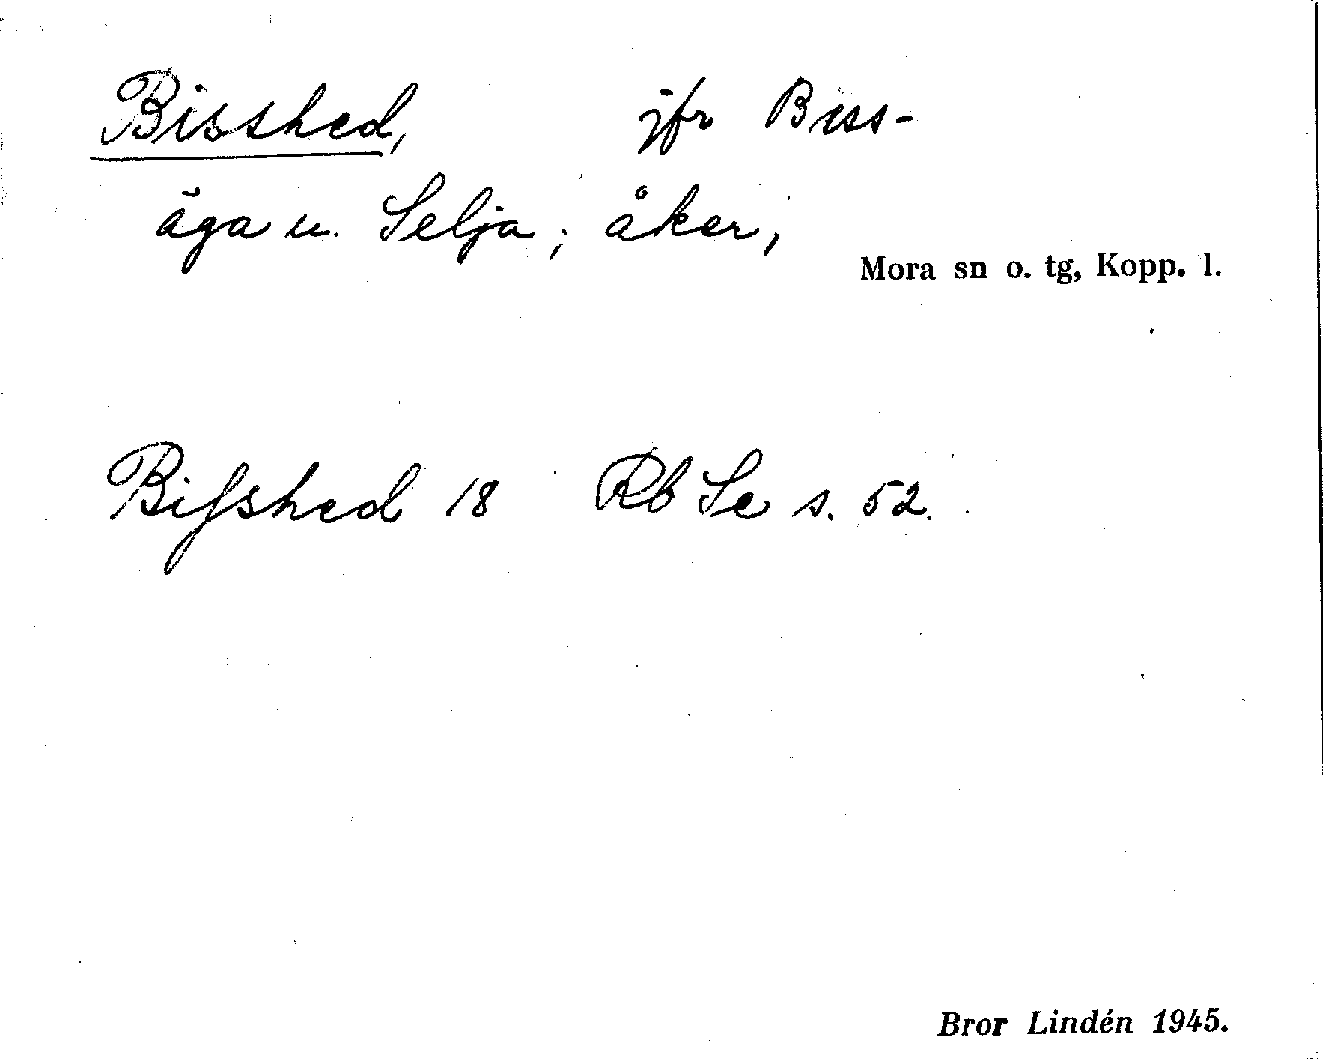 Bisshed, jfr Biss-
äga u. Selja; åker,
Mora sn o. tg, Kopp. l.
Bifshed 18 Rb Se s. 52.
Bror Lindén 1945.